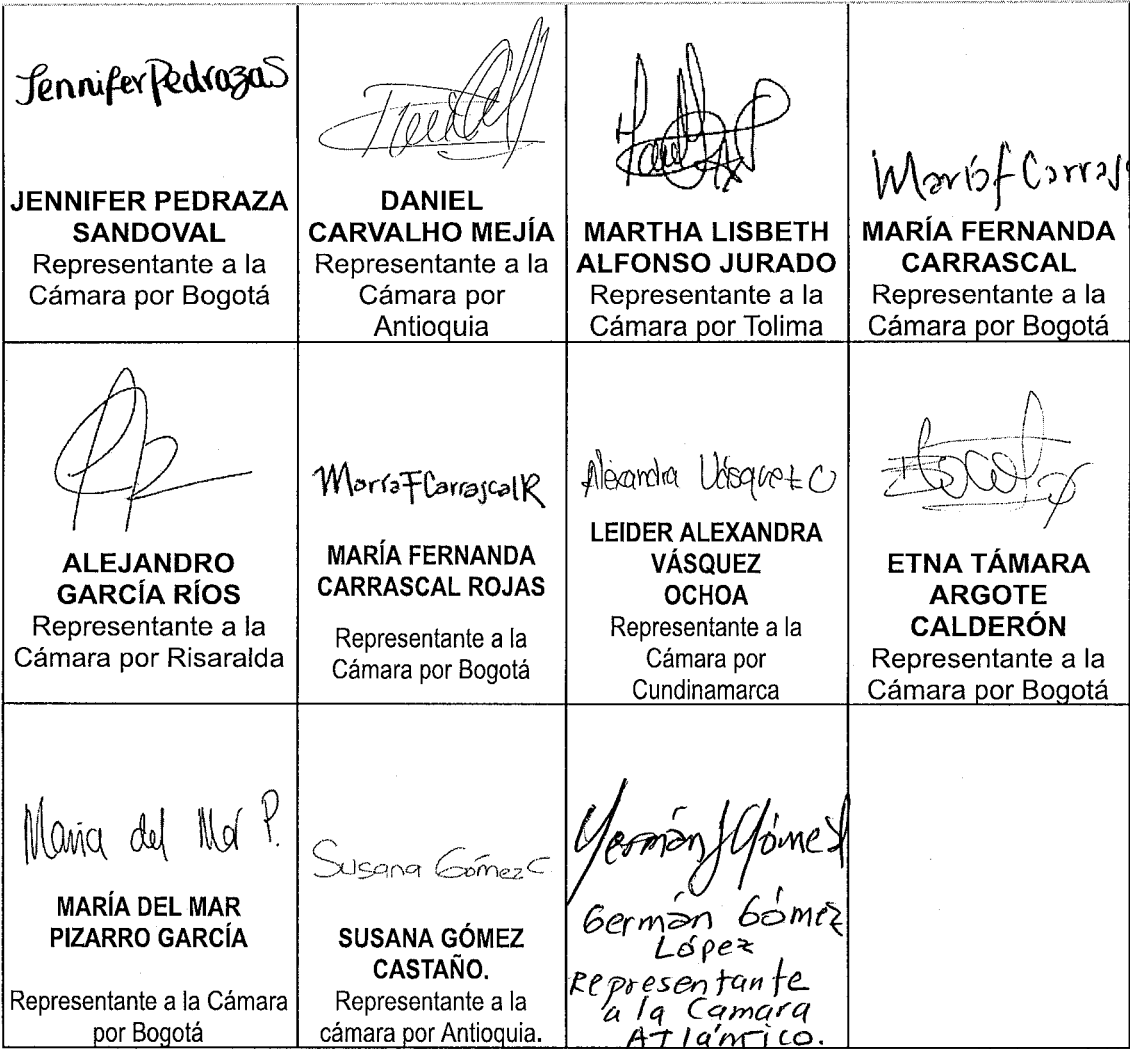 Jennifer Pedraza S
JENNIFER PEDRAZA
SANDOVAL
Representante a la
Cámara por Bogotá
DANIEL
CARVALHO MEJÍA
Representante a la
Cámara por
Antioquia
MARTHA LISBETH
ALFONSO JURADO
Representante a la
Cámara por Tolima
María f Carrasc
MARÍA FERNANDA
CARRASCAL
Representante a la
Cámara por Bogotá
ALEJANDRO
GARCÍA RÍOS
Representante a la
Cámara por Risaralda
María F Carrascal R
MARÍA FERNANDA
CARRASCAL ROJAS
Representante a la
Cámara por Bogotá
Alexandra Vásquez O
LEIDER ALEXANDRA
VÁSQUEZ
OCHOA
Representante a la
Cámara por
Cundinamarca
ETNA TÁMARA
ARGOTE
CALDERÓN
Representante a la
Cámara por Bogotá
María del Mar P.
MARÍA DEL MAR
PIZARRO GARCÍA
Representante a la Cámara
por Bogotá
Susana Gómez C
SUSANA GÓMEZ
CASTAÑO.
Representante a la
cámara por Antioquia.
Germán Gómez
Germán Gómez
López
Representante
a la Camara
Atlántico.